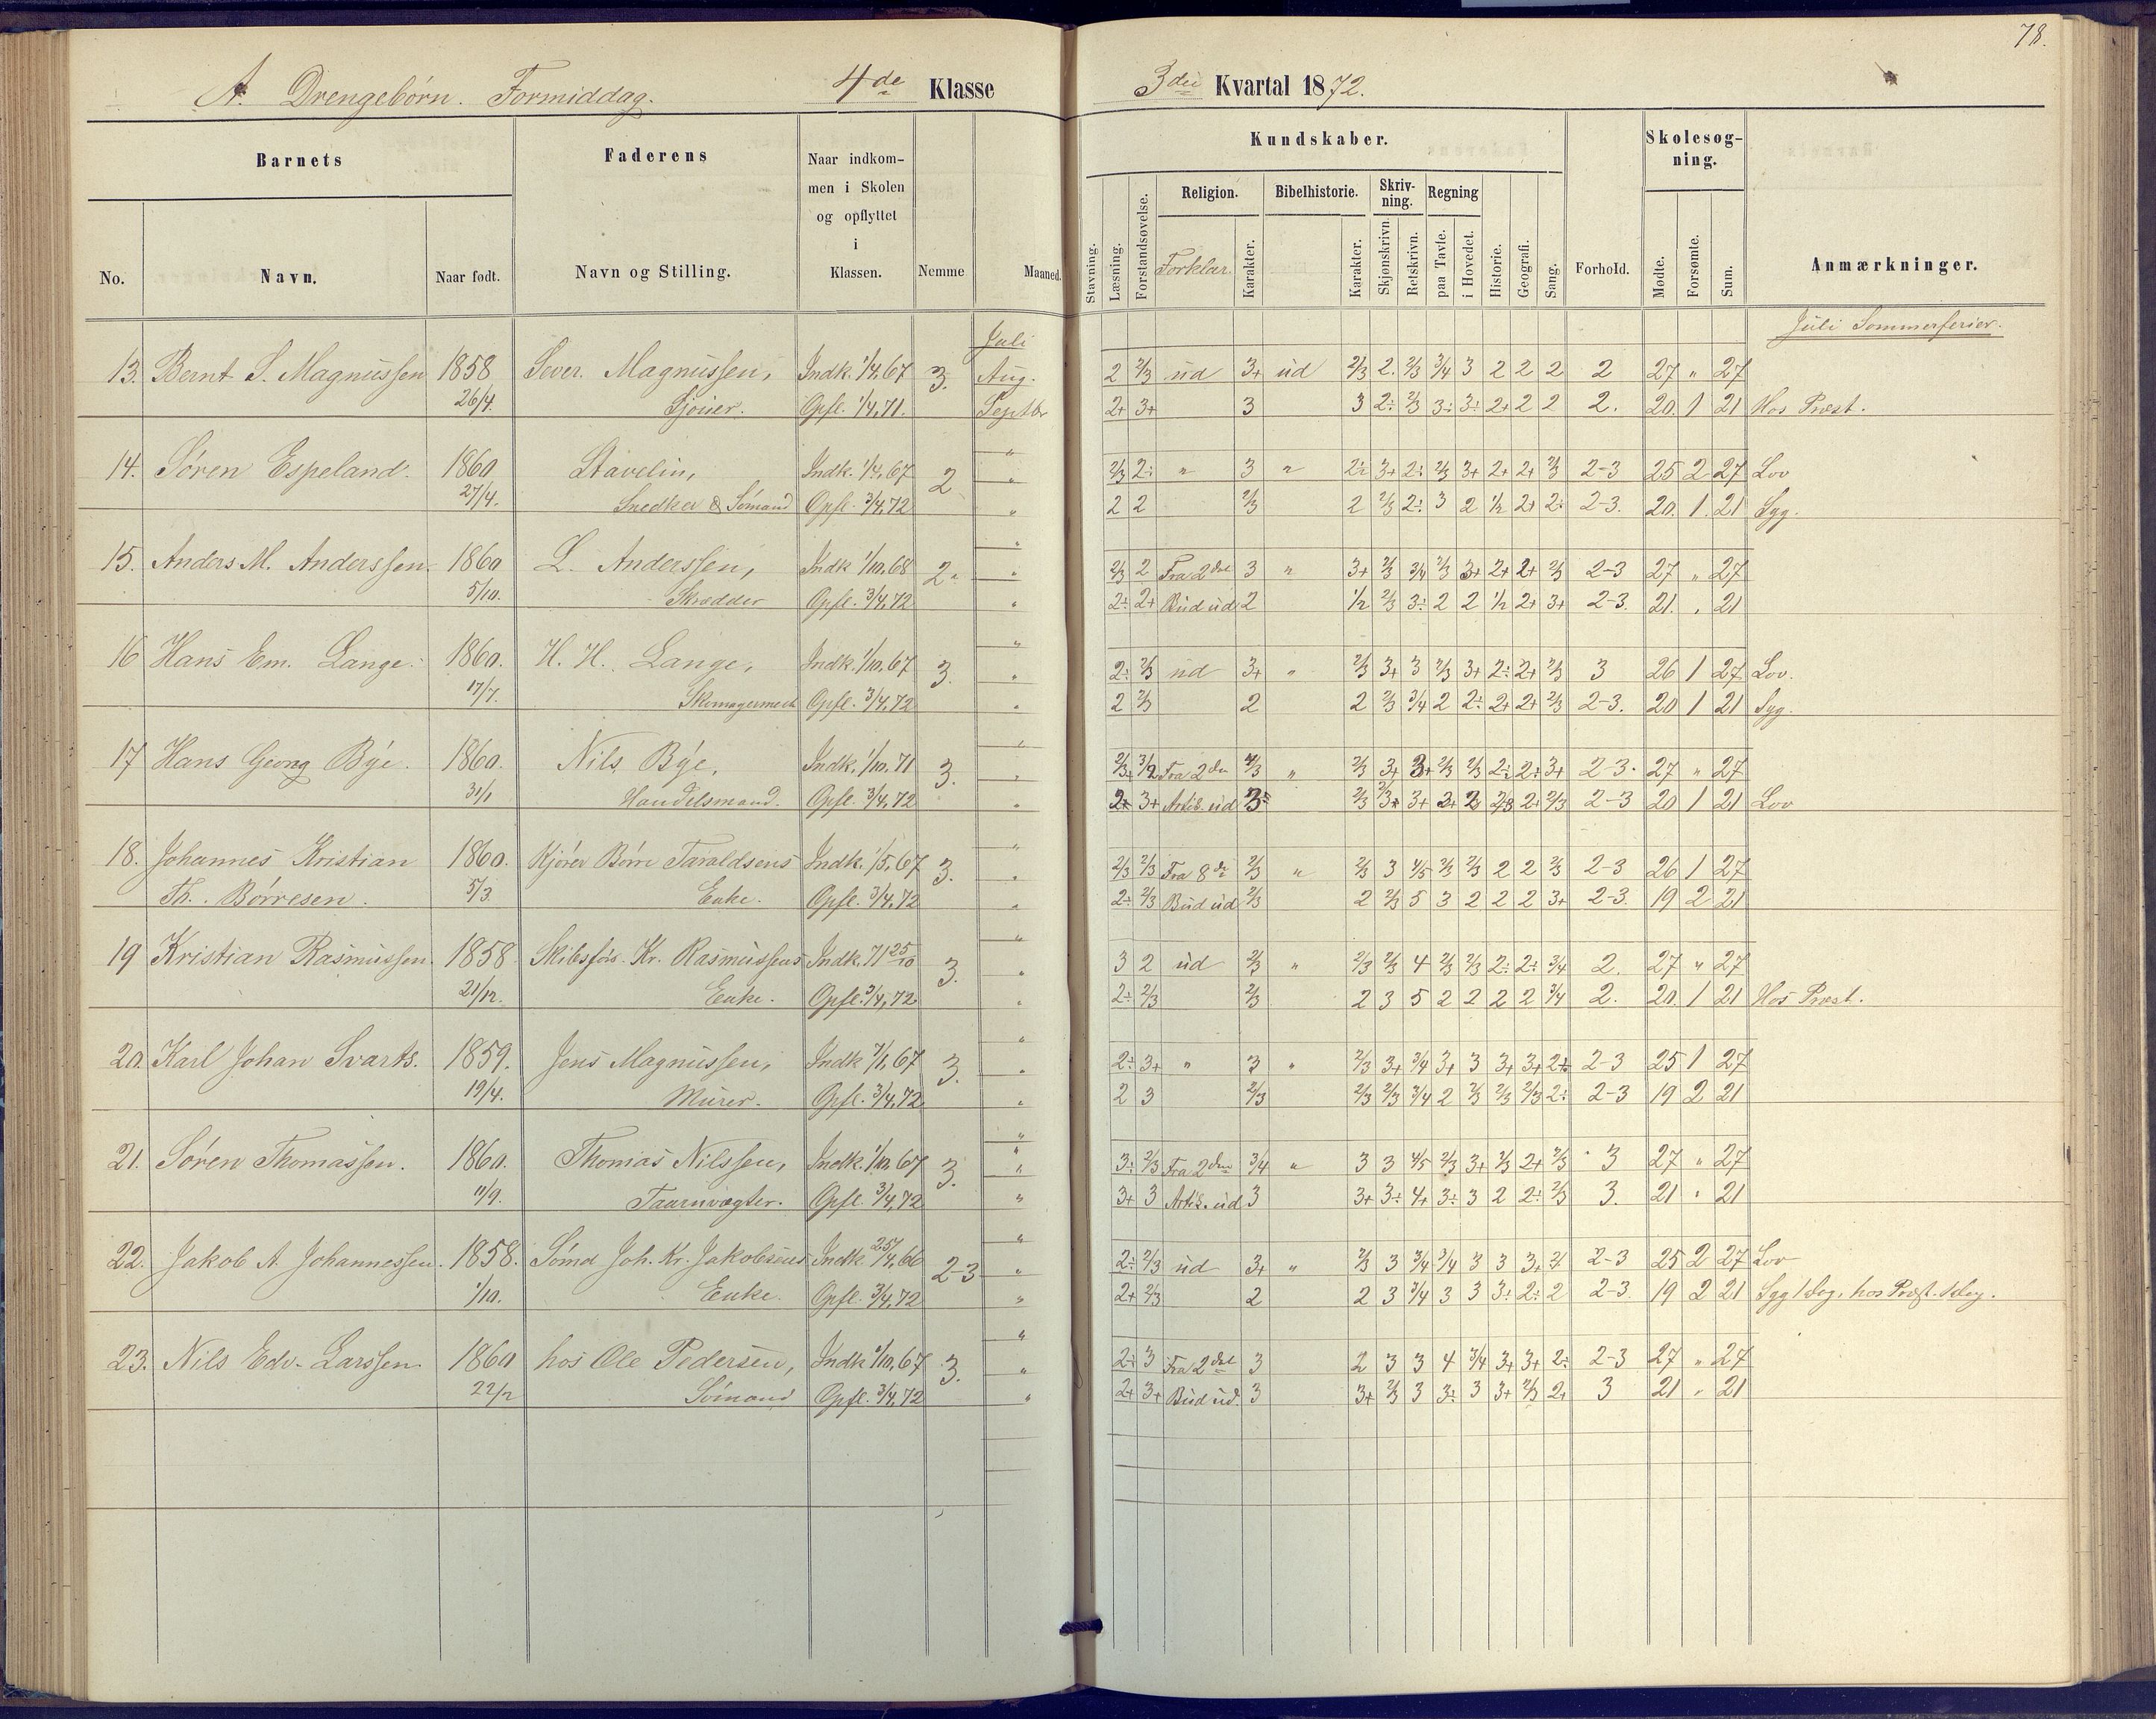 78.
A. Drengebørn. Formiddag. 4de Klasse 3die Kvartal 1872.
Barnets Faderens Naar indkommen i Skolen og opflyttet i Klassen. Nemme Maaned. Kundskaber. Forhold. Skolesøgning. Anmærkninger.
No. Navn. Naar født. Navn og Stilling.
Stavning. Læsning. Forstandsøvelse. Religion. Forklar. Karakter. Bibelhistorie. Karakter. Skrivning. Skjønskrivn. Retskrivn. Regning paa Tavle. i Hovedet. Historie. Geografi. Sang. Mødte. Forsømte. Sum.
Juli Juli Sommerferier.
13. Bernt S. Magnussen 1858 Sever. Magnussen, Indk. 1/4.67 3. Aug. 2 2/3 ud 3+ ud 2/3 2. 2/3 3/4 3 2 2 2 2 27 " 27
26/4. Sjouer. Opfl. 1/4.71. Septbr 2+ 3+ 3 3 2÷ 2/3 3÷ 3÷ 2+ 2 2 2. 20. 1 21 Hos Præst.
14. Søren Espeland. 1860 Stavelin, Indk. 1/4.67 2 " 2/3 2÷ " 3 " 2÷ 3+ 2÷ 2/3 3+ 2+ 2+ 2/3 2-3 25 2 27 Lov
27/4. Snedker & Sømand Opfl. 3/4.72 " 2 2 2/3 2 2/3 2÷ 3 2 1/2 2+ 2÷ 2-3. 20. 1. 21 Syg.
15. Anders M. Anderssen. 1860 L. Anderssen, Indk 1/10.68 2. " 2/3 2 Fra 2det 3 " 3+ 2/3 3/4 2/3 3+ 2+ 2+ 2/3 2-3 27 " 27
5/10. Skrædder Opfl. 3/4.72 " 2÷ 2+ Bud ud 2 1/2 2/3 3÷ 2 2 1/2 2+ 3+ 2-3. 21. " 21
16 Hans Em. Lange. 1860. H. H. Lange, Indk. 1/10.67 3. " 2÷ 2/3 ud 3+ " 2/3 3+ 3 2/3 3+ 2÷ 2+ 2/3 3 26 1 27 Lov.
17/7. Skomagermest Opfl. 3/4.72 " 2 2/3 2 2 2/3 3/4 2 2÷ 2+ 2+ 2/3 2-3. 20 1 21 Syg.
17 Hans Georg Bÿe. 1860. Nils Bÿe, Indk. 1/10.71 3. " Fra 2den " 2/3 3+ 3+ 2/3 2/3 2÷ 2÷ 3+ 2-3. 27 " 27
31/1 Handelsmand. Opfl. 3/4.72 " 2+ 3+ Artik. ud 2/3 3+ 2+ 2+ 2/3 2-3 20 1 21 Lov
18. Johannes Kristian 1860. Kjører Børre Taraldsens Indk. 1/5.67 3. " 2/3 2/3 Fra 8de 2/3 " 2/3 3 4/5 2/3 2/3 2 2 2/3 2-3 26 1 27
Th. Børresen. 5/3. Enke. Opfl. 3/4.72 " 2÷ 2/3 Bud ud 2/3 2 2/3 5 3 2 2 2 3+ 2-3. 19 2 21
19 Kristian Rasmussen. 1858 Skibsfør. Kr. Rasmussens Indk. 71 25/10 3. " 3 2 ud 2/3 " 2/3 2/3 4 2/3 2/3 2÷ 2÷ 3/4 2. 27 " 27
21/12. Enke. Opfl. 3/4.72 " 2÷ 2/3 2/3 2 3 5 2 2 2 2 3/4 2. 20. 1 21 Hos Præst.
20. Karl Johan Svarts. 1859. Jens Magnussen, Indk 7/1.67 3. " 2÷ 3+ " 3 " 2/3 3+ 3/4 3+ 3 3+ 3+ 2+ 2-3 25 1 27
19/4. Murer. Opfl. 3/4.72 " 2 3 2/3 2/3 2/3 3/4 2 2/3 2/3 2/3 2÷ 2-3 19 2 21
21. Søren Thomassen. 1860. Thomas Nilssen, Indk. 1/10.67 3. " 3÷ 2/3 Fra 2den 3/4 " 3 3 4/5 2/3 3+ 2/3 2+ 2/3 3 27 " 27
11/9. Taarnvægter. Opfl. 3/4.72 " 3+ 3 Artik. ud 3 3+ 3÷ 4+ 3÷ 3 2 2÷ 2/3 3. 21 " 21
22. Jakob A. Johannessen. 1858. Sømd Joh. Kr. Jakobsens Indk. 25/4.66 2-3 " 2÷ 2/3 ud 3+ " 2/3 3 3/4 3/4 3 3 3+ 2-3 25 2 27 Lov
1/10. Enke. Opfl. 3/4.72 " 2+ 2/3 2 2 3 3/4 3 3 3÷ 2÷ 2 2-3. 19 2 21 Syg 1 Dag, hos Præst. 1 Dag.
23. Nils Edv. Larssen. 1860 hos Ole Pedersen, Indk 1/10.67 3. " 2÷ 3 Fra 2det 3 2 3 3 4 3/4 3+ 3+ 2÷ 2-3 27 " 27
22/2 Sømand Opfl. 3/4.72 " 2+ 3+ Bud ud. 3 3+ 2/3 3 3÷ 3 3+ 2/3 2+ 3 21 " 21